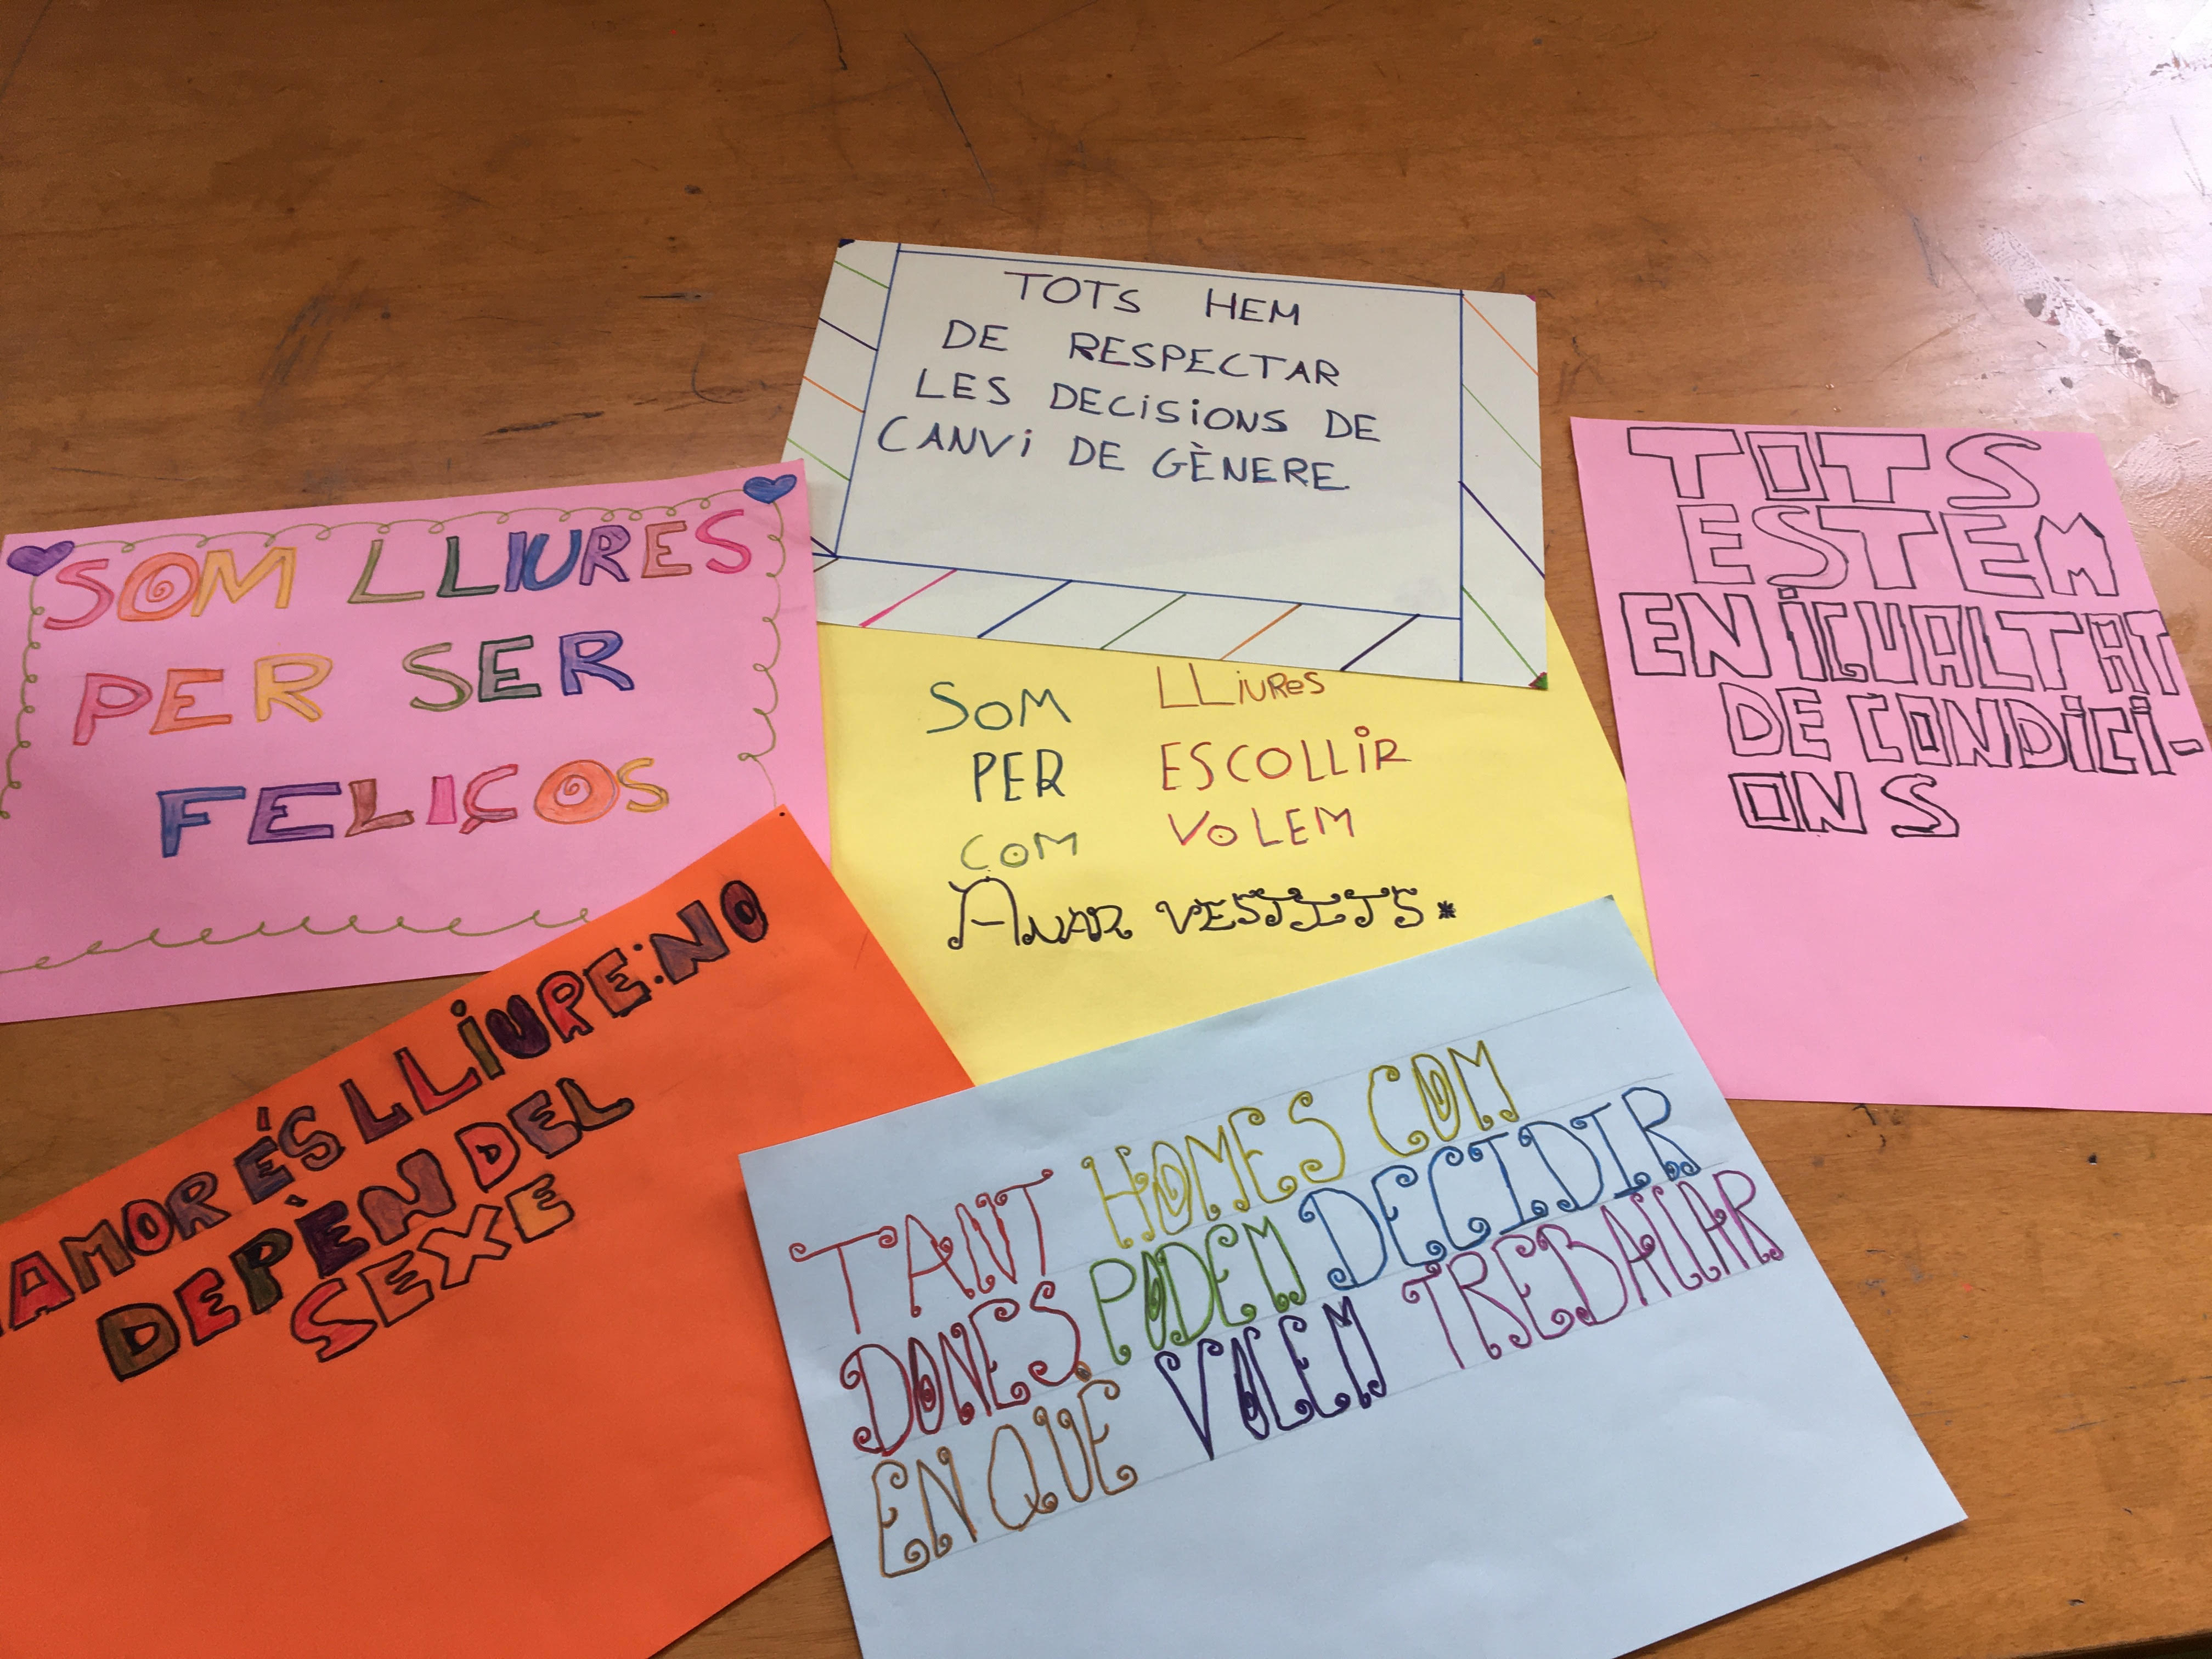 TOTS HEM
DE RESPECTAR
LES DECISIONS DE
CANVI DE GÈNERE
SOM LLIURES
PER SER
FELIÇOS
SOM LLIURES
PER ESCOLLIR
COM VOLEM
ANAR VESTITS*
TOTS
ESTEM
EN IGUALTAT
DE CONDICI-
ONS
AMOR ÉS LLIURE: NO
DEPÈN DEL
SEXE
TANT HOMES COM
DONES. PODEM DECIDIR
EN QUÈ VOLEM TREBALLAR